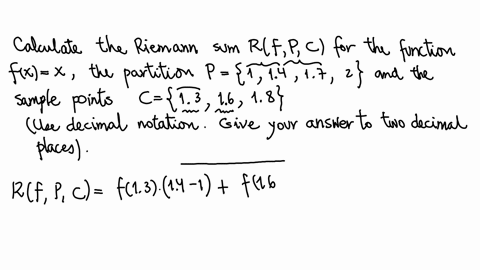 Calculate the Riemann sum R(f,P,C) for the function
f(x)=x, the partition P={1,1.4,1.7,2} and the
sample points C={1.3,1.6,1.8}
(Use decimal notation. Give your answer to two decimal
places).
R(f,P,C)= f(1.3).(1.4-1)+ f(1.6